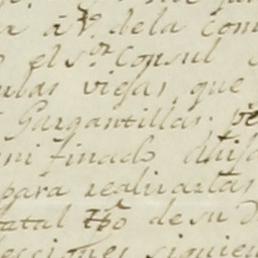 a á V. de la com
el S.or Consul
las viejas, que
Gargantillas. ve
mi finado
para realizarlas
tatal tpo de su D
ecciones siguien